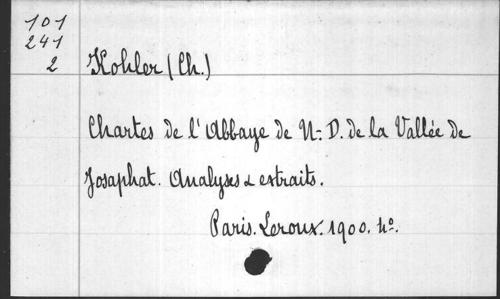 101
241
2
Kohler (Ch.)
Chartes de l'Abbaye de N.-D. de la Vallée de
Josaphat. Analyses & extraits.
Paris. Leroux. 1900. 4°.